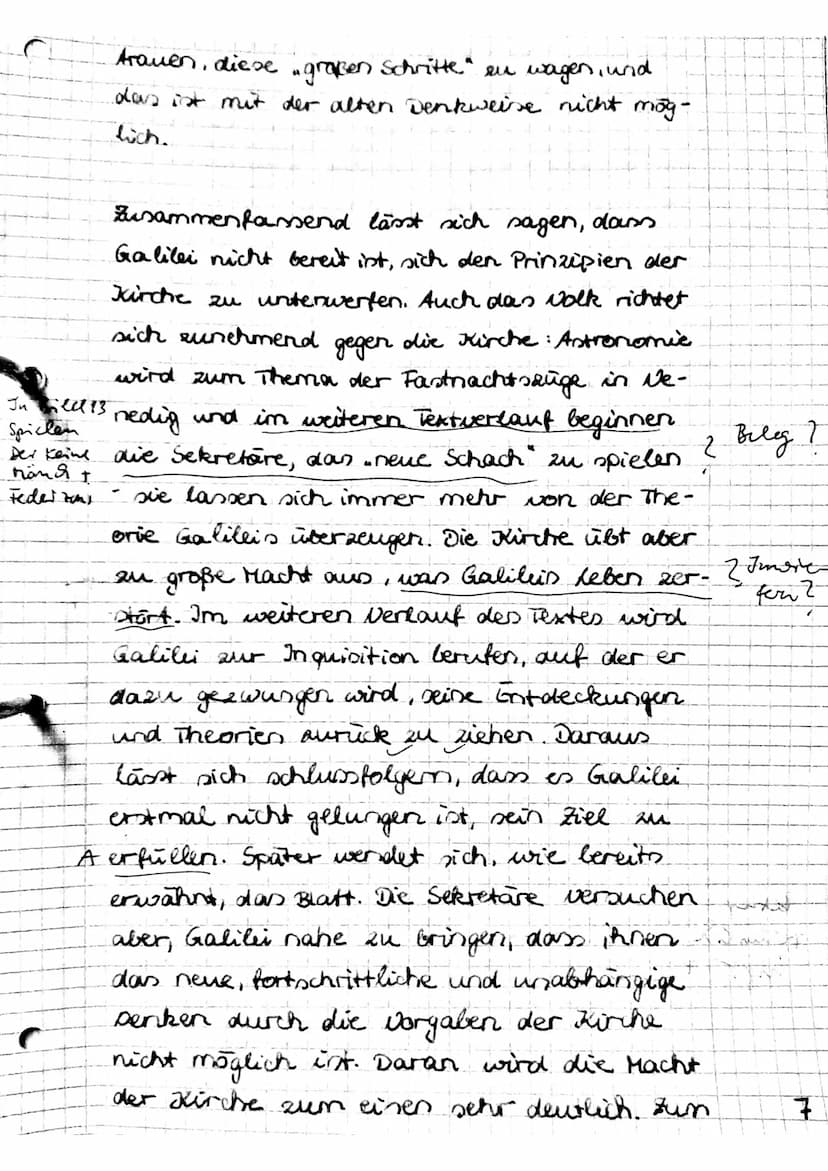 trauen, diese „großen Schritte“ zu wagen, und
das ist mit der alten Denkweise nicht mög-
lich.
Zusammenfassend lässt sich sagen, dass
Galilei nicht bereit ist, sich den Prinzipien der
Kirche zu unterwerfen. Auch das Volk richtet
sich zunehmend gegen die Kirche: Astronomie
wird zum Thema der Fastnachtszüge in Ve-
nedig und im weiteren Textverlauf beginnen
die Sekretäre, das „neue Schach“ zu spielen
- sie lassen sich immer mehr von der The-
orie Galileis überzeugen. Die Kirche übt aber
zu große Macht aus, was Galileis Leben zer-
stört. Im weiteren Verlauf des Textes wird
Galilei zur Inquisition berufen, auf der er
dazu gezwungen wird, seine Entdeckungen
und Theorien zurück zu ziehen. Daraus
lässt sich schlussfolgern, dass es Galilei
erstmal nicht gelungen ist, sein Ziel zu
A erfüllen. Später wendet sich, wie bereits
erwähnt, das Blatt. Die Sekretäre versuchen
aber, Galilei nahe zu bringen, dass ihnen
das neue, fortschrittliche und unabhängige
Denken durch die Vorgaben der Kirche
nicht möglich ist. Daran wird die Macht
der Kirche zum einen sehr deutlich. Zum
7
In Bild 13
spielen
der kleine
Mönch +
Federzoni
? Beleg?
? Inwie-
fern?